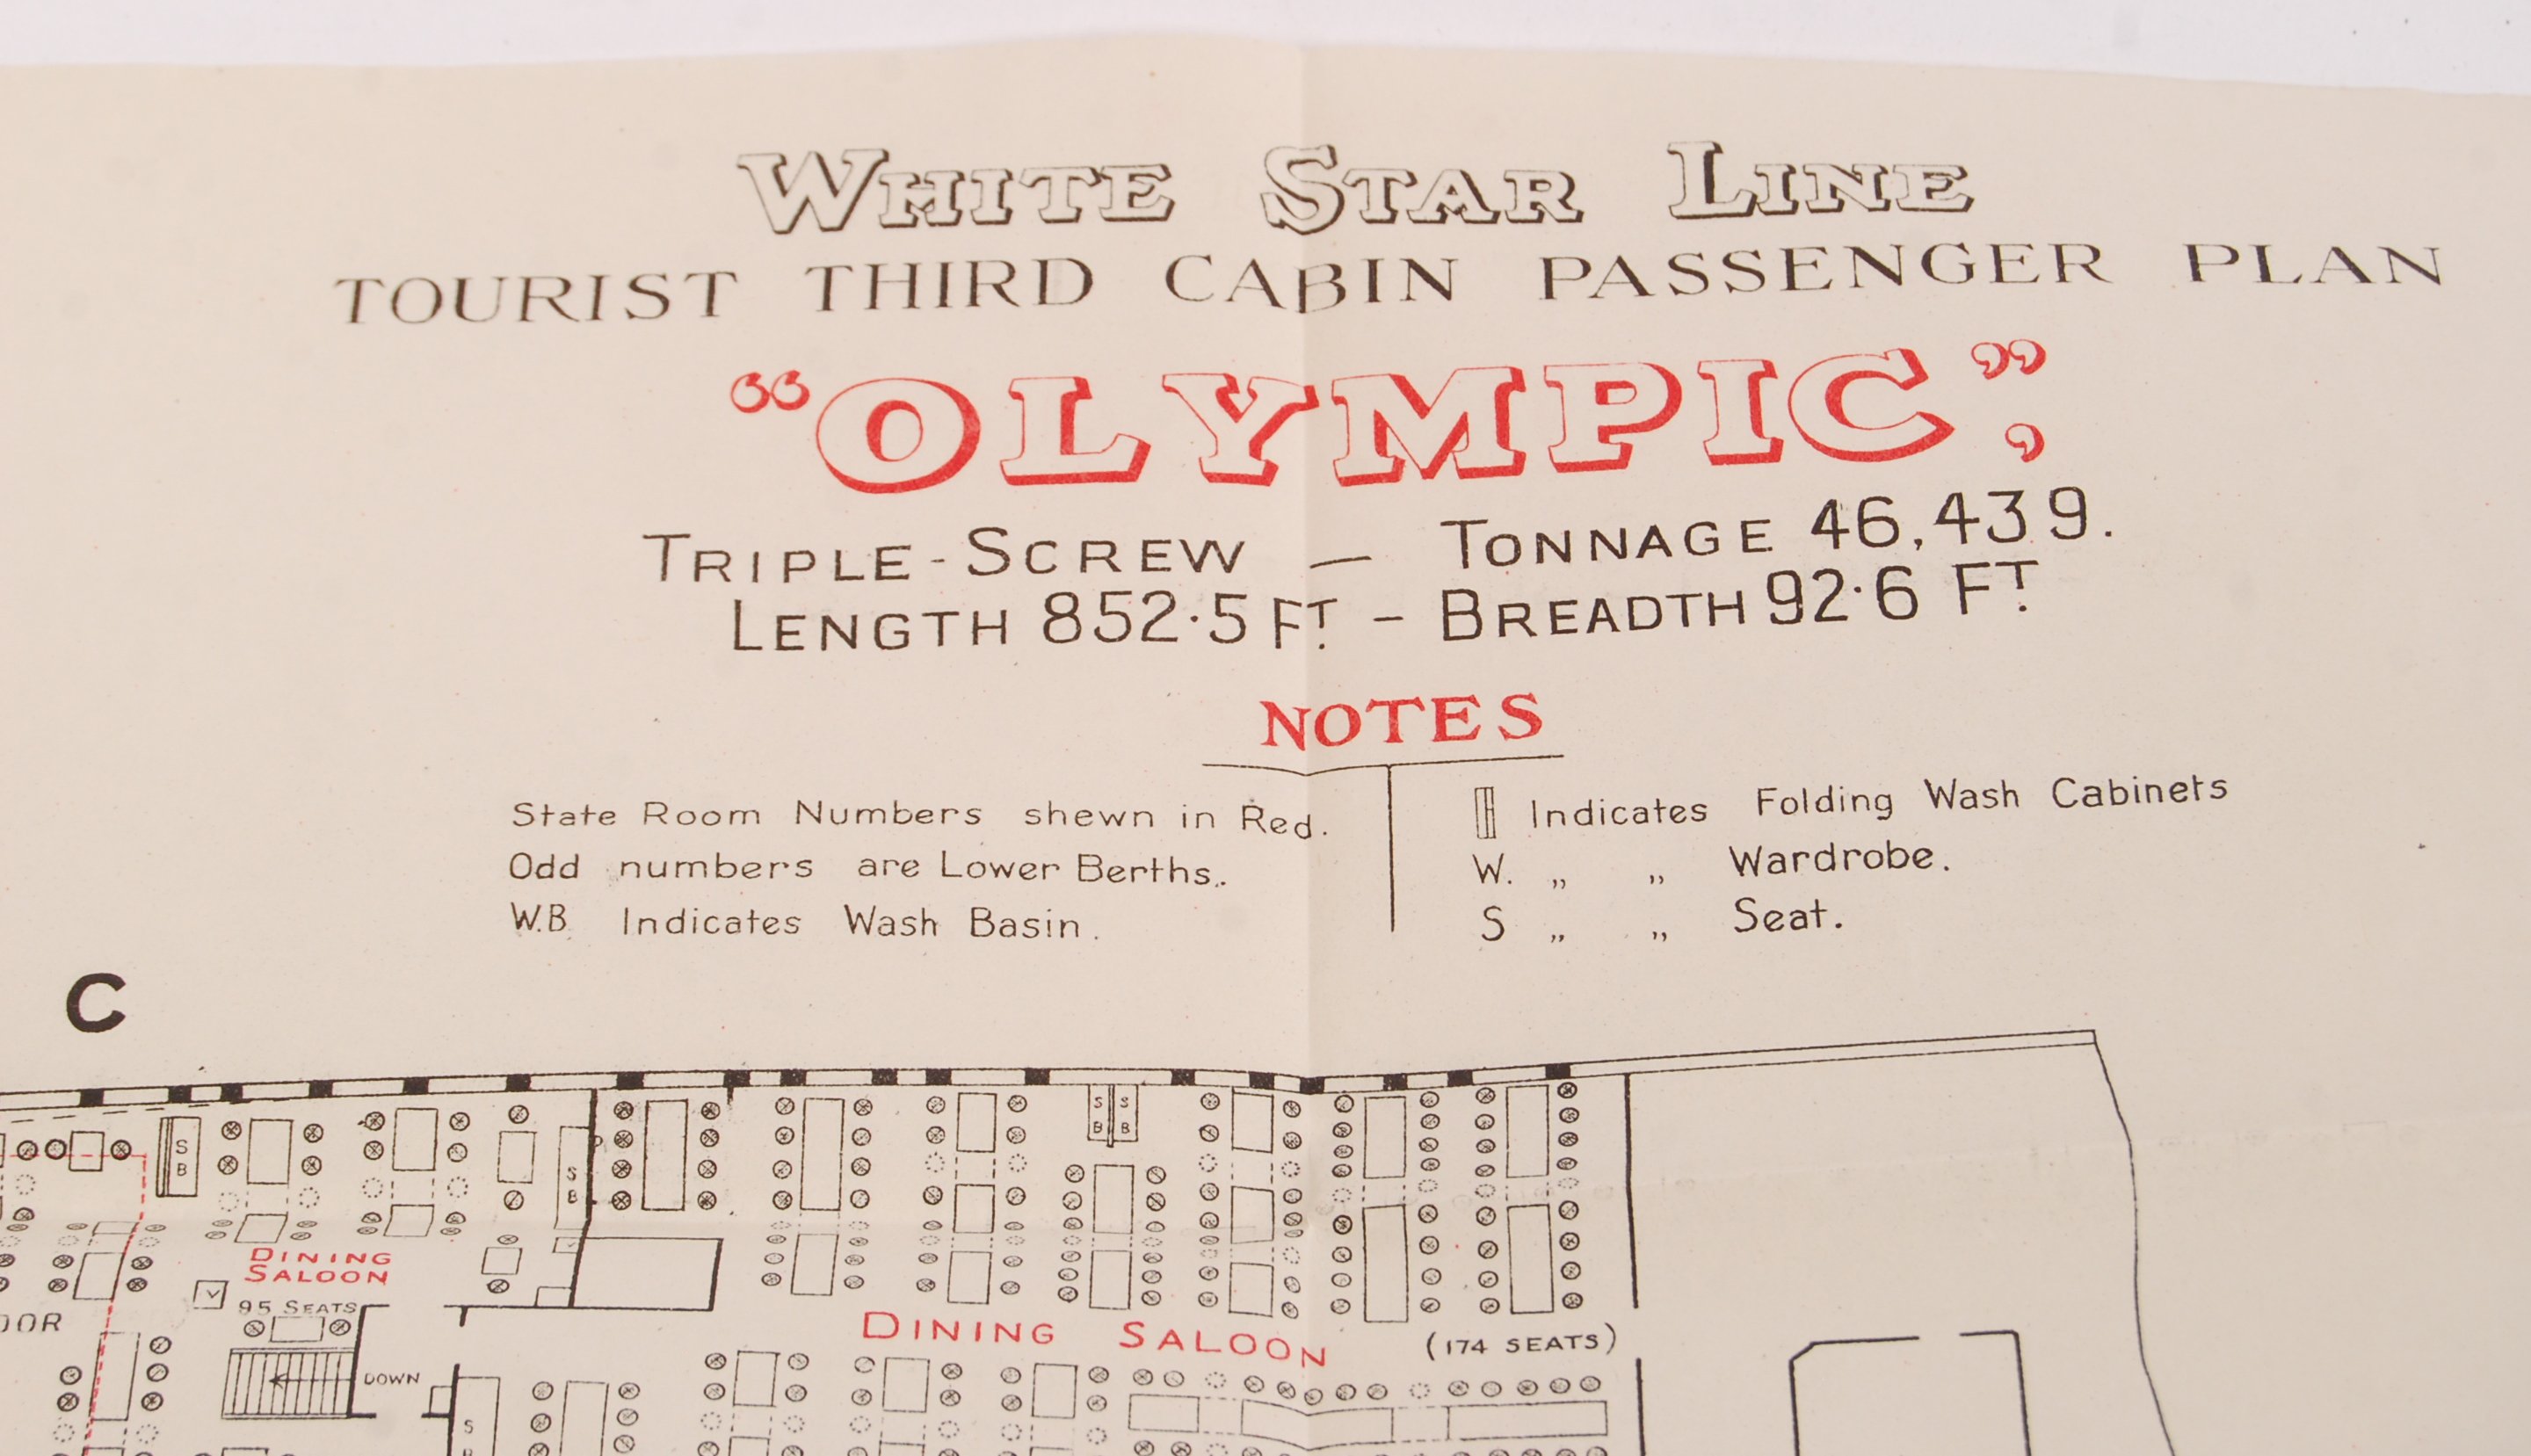 WHITE STAR LINE
TOURIST THIRD CABIN PASSENGER PLAN
"OLYMPIC",
TRIPLE-SCREW — TONNAGE 46,439.
LENGTH 852·5 FT. – BREADTH 92·6 FT.
NOTES
State Room Numbers shewn in Red.
Odd numbers are Lower Berths.
W.B. Indicates Wash Basin.
Indicates Folding Wash Cabinets
W. „ „ Wardrobe.
S „ „ Seat.
C
S B
S B
S B
S B
DINING SALOON
95 SEATS
DOWN
DINING SALOON (174 SEATS)
S